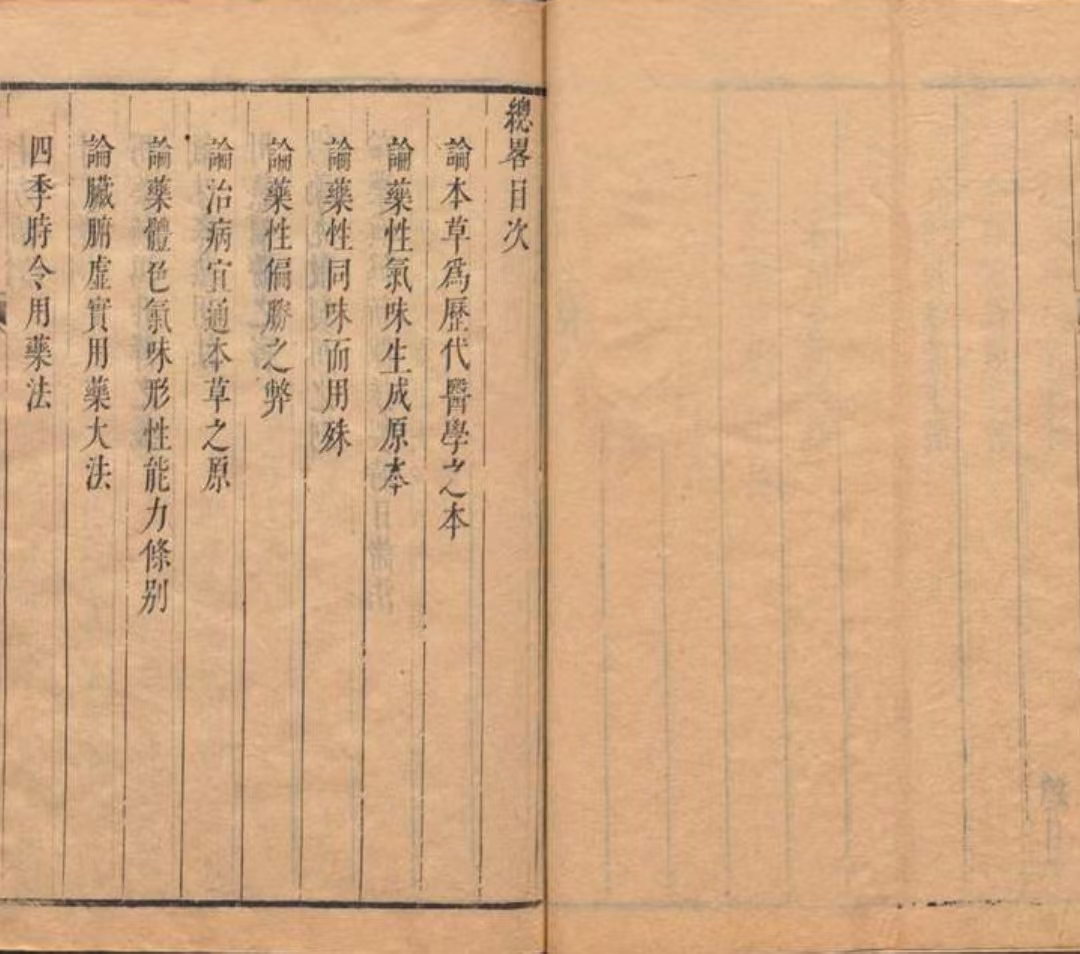 總畧目次
論本草爲歷代醫學之本
論藥性氣味生成原本
論藥性同味而用殊
論藥性偏勝之弊
論治病宜通本草之原
論藥體色氣味形性能力條别
論臟腑虛實用藥大法
四季時令用藥法